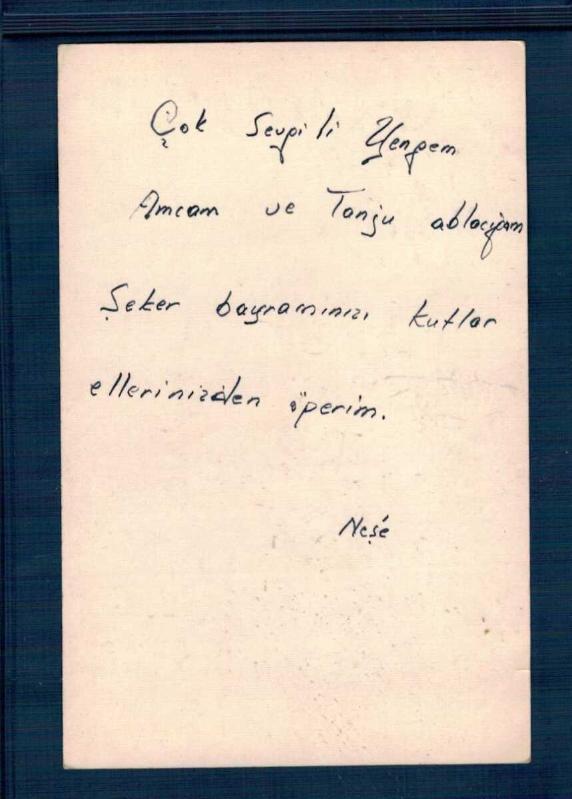 Çok Sevgili Yengem
Amcam ve Tanju ablacığım
Şeker bayramınızı kutlar
ellerinizden öperim.
Neşe